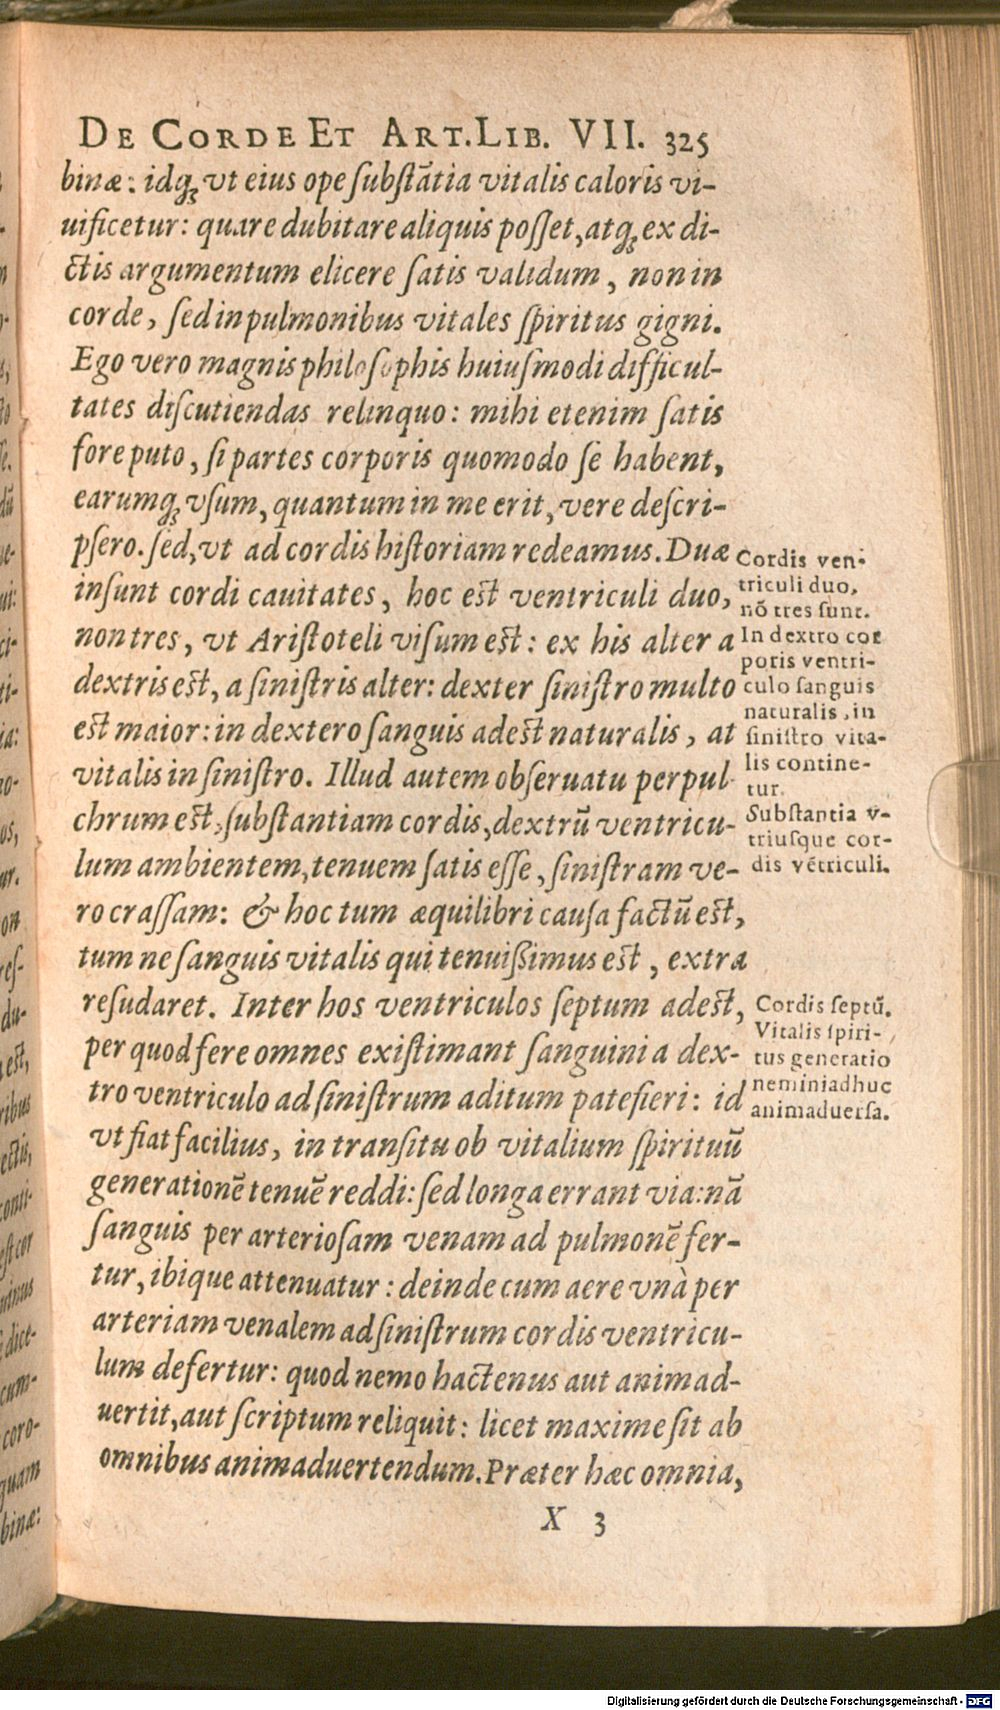 DE CORDE ET ART. LIB. VII. 325
binæ: idq; vt eius ope substãtia vitalis caloris vi-
uificetur: quare dubitare aliquis posset, atq; ex di-
ctis argumentum elicere satis validum, non in
corde, sed in pulmonibus vitales spiritus gigni.
Ego vero magnis philosophis huiusmodi difficul-
tates discutiendas relinquo: mihi etenim satis
fore puto, si partes corporis quomodo se habent,
earumq; vsum, quantum in me erit, vere descri-
psero. sed, vt ad cordis historiam redeamus. Duæ
insunt cordi cauitates, hoc est ventriculi duo,
non tres, vt Aristoteli visum est: ex his alter a
dextris est, a sinistris alter: dexter sinistro multo
est maior: in dextero sanguis adest naturalis, at
vitalis in sinistro. Illud autem obseruatu perpul
chrum est, substantiam cordis, dextrũ ventricu-
lum ambientem, tenuem satis esse, sinistram ve-
ro crassam: & hoc tum æquilibri causa factũ est,
tum ne sanguis vitalis qui tenuissimus est, extra
resudaret. Inter hos ventriculos septum adest,
per quod fere omnes existimant sanguini a dex-
tro ventriculo ad sinistrum aditum patefieri: id
vt fiat facilius, in transitu ob vitalium spirituũ
generationẽ tenuẽ reddi: sed longa errant via: nã
sanguis per arteriosam venam ad pulmonẽ fer-
tur, ibique attenuatur: deinde cum aere vnà per
arteriam venalem ad sinistrum cordis ventricu-
lum defertur: quod nemo hactenus aut animad-
uertit, aut scriptum reliquit: licet maxime sit ab
omnibus animaduertendum. Præter hæc omnia,
X 3
Cordis ven-
triculi duo,
nõ tres sunt.
In dextro cor
poris ventri-
culo sanguis
naturalis, in
sinistro vita-
lis contine-
tur.
Substantia v-
triusque cor-
dis vẽtriculi.
Cordis septũ.
Vitalis spiri-
tus generatio
nemini adhuc
animaduersa.
Digitalisierung gefördert durch die Deutsche Forschungsgemeinschaft - DFG